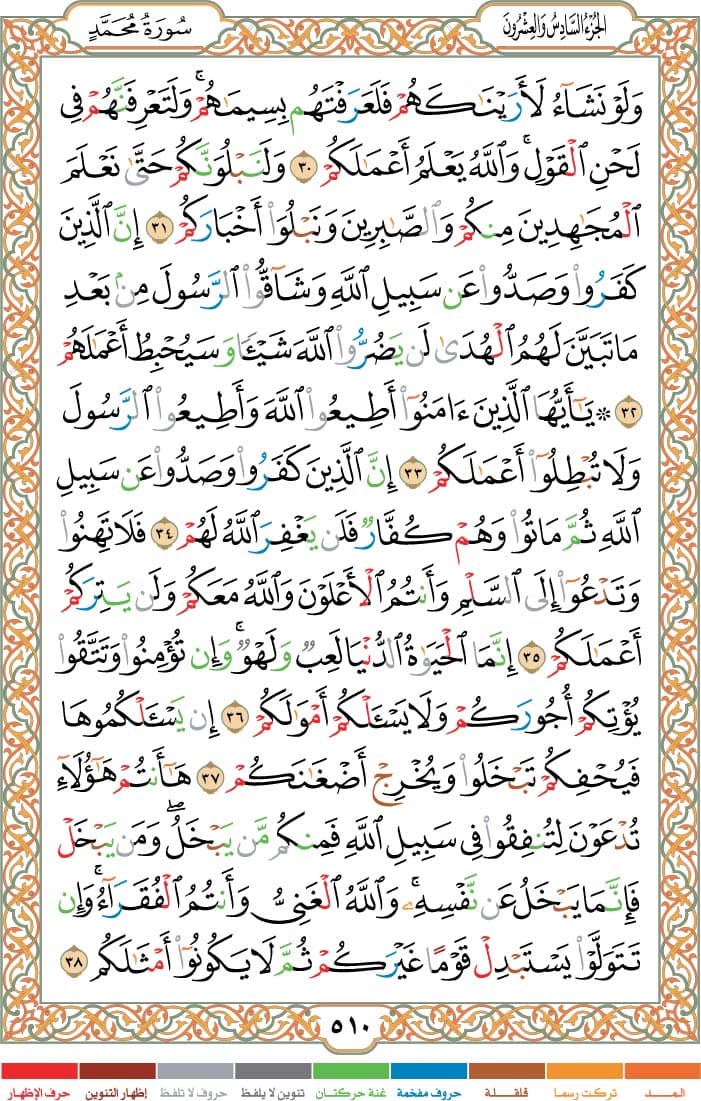 الجزء السادس والعشرون
سورة محمد
وَلَوْ نَشَآءُ لَأَرَيْنَٰكَهُمْ فَلَعَرَفْتَهُم بِسِيمَٰهُمْ ۚ وَلَتَعْرِفَنَّهُمْ فِى
لَحْنِ ٱلْقَوْلِ ۚ وَٱللَّهُ يَعْلَمُ أَعْمَٰلَكُمْ ٣٠ وَلَنَبْلُوَنَّكُمْ حَتَّىٰ نَعْلَمَ
ٱلْمُجَٰهِدِينَ مِنكُمْ وَٱلصَّٰبِرِينَ وَنَبْلُوَا۟ أَخْبَارَكُمْ ٣١ إِنَّ ٱلَّذِينَ
كَفَرُوا۟ وَصَدُّوا۟ عَن سَبِيلِ ٱللَّهِ وَشَآقُّوا۟ ٱلرَّسُولَ مِنۢ بَعْدِ
مَا تَبَيَّنَ لَهُمُ ٱلْهُدَىٰ لَن يَضُرُّوا۟ ٱللَّهَ شَيْـًٔا وَسَيُحْبِطُ أَعْمَٰلَهُمْ
٣٢ ۞ يَٰٓأَيُّهَا ٱلَّذِينَ ءَامَنُوٓا۟ أَطِيعُوا۟ ٱللَّهَ وَأَطِيعُوا۟ ٱلرَّسُولَ
وَلَا تُبْطِلُوٓا۟ أَعْمَٰلَكُمْ ٣٣ إِنَّ ٱلَّذِينَ كَفَرُوا۟ وَصَدُّوا۟ عَن سَبِيلِ
ٱللَّهِ ثُمَّ مَاتُوا۟ وَهُمْ كُفَّارٌ فَلَن يَغْفِرَ ٱللَّهُ لَهُمْ ٣٤ فَلَا تَهِنُوا۟
وَتَدْعُوٓا۟ إِلَى ٱلسَّلْمِ وَأَنتُمُ ٱلْأَعْلَوْنَ وَٱللَّهُ مَعَكُمْ وَلَن يَتِرَكُمْ
أَعْمَٰلَكُمْ ٣٥ إِنَّمَا ٱلْحَيَوٰةُ ٱلدُّنْيَا لَعِبٌ وَلَهْوٌ ۚ وَإِن تُؤْمِنُوا۟ وَتَتَّقُوا۟
يُؤْتِكُمْ أُجُورَكُمْ وَلَا يَسْـَٔلْكُمْ أَمْوَٰلَكُمْ ٣٦ إِن يَسْـَٔلْكُمُوهَا
فَيُحْفِكُمْ تَبْخَلُوا۟ وَيُخْرِجْ أَضْغَٰنَكُمْ ٣٧ هَٰٓأَنتُمْ هَٰٓؤُلَآءِ
تُدْعَوْنَ لِتُنفِقُوا۟ فِى سَبِيلِ ٱللَّهِ فَمِنكُم مَّن يَبْخَلُ ۖ وَمَن يَبْخَلْ
فَإِنَّمَا يَبْخَلُ عَن نَّفْسِهِۦ ۚ وَٱللَّهُ ٱلْغَنِىُّ وَأَنتُمُ ٱلْفُقَرَآءُ ۚ وَإِن
تَتَوَلَّوْا۟ يَسْتَبْدِلْ قَوْمًا غَيْرَكُمْ ثُمَّ لَا يَكُونُوٓا۟ أَمْثَٰلَكُم ٣٨
٥١٠
المـــد تركت رسما قلقـلـة حروف مفخمة غنة حركتان تنوين لا يلفظ حروف لا تلفظ إظهار التنوين حرف الإظهار